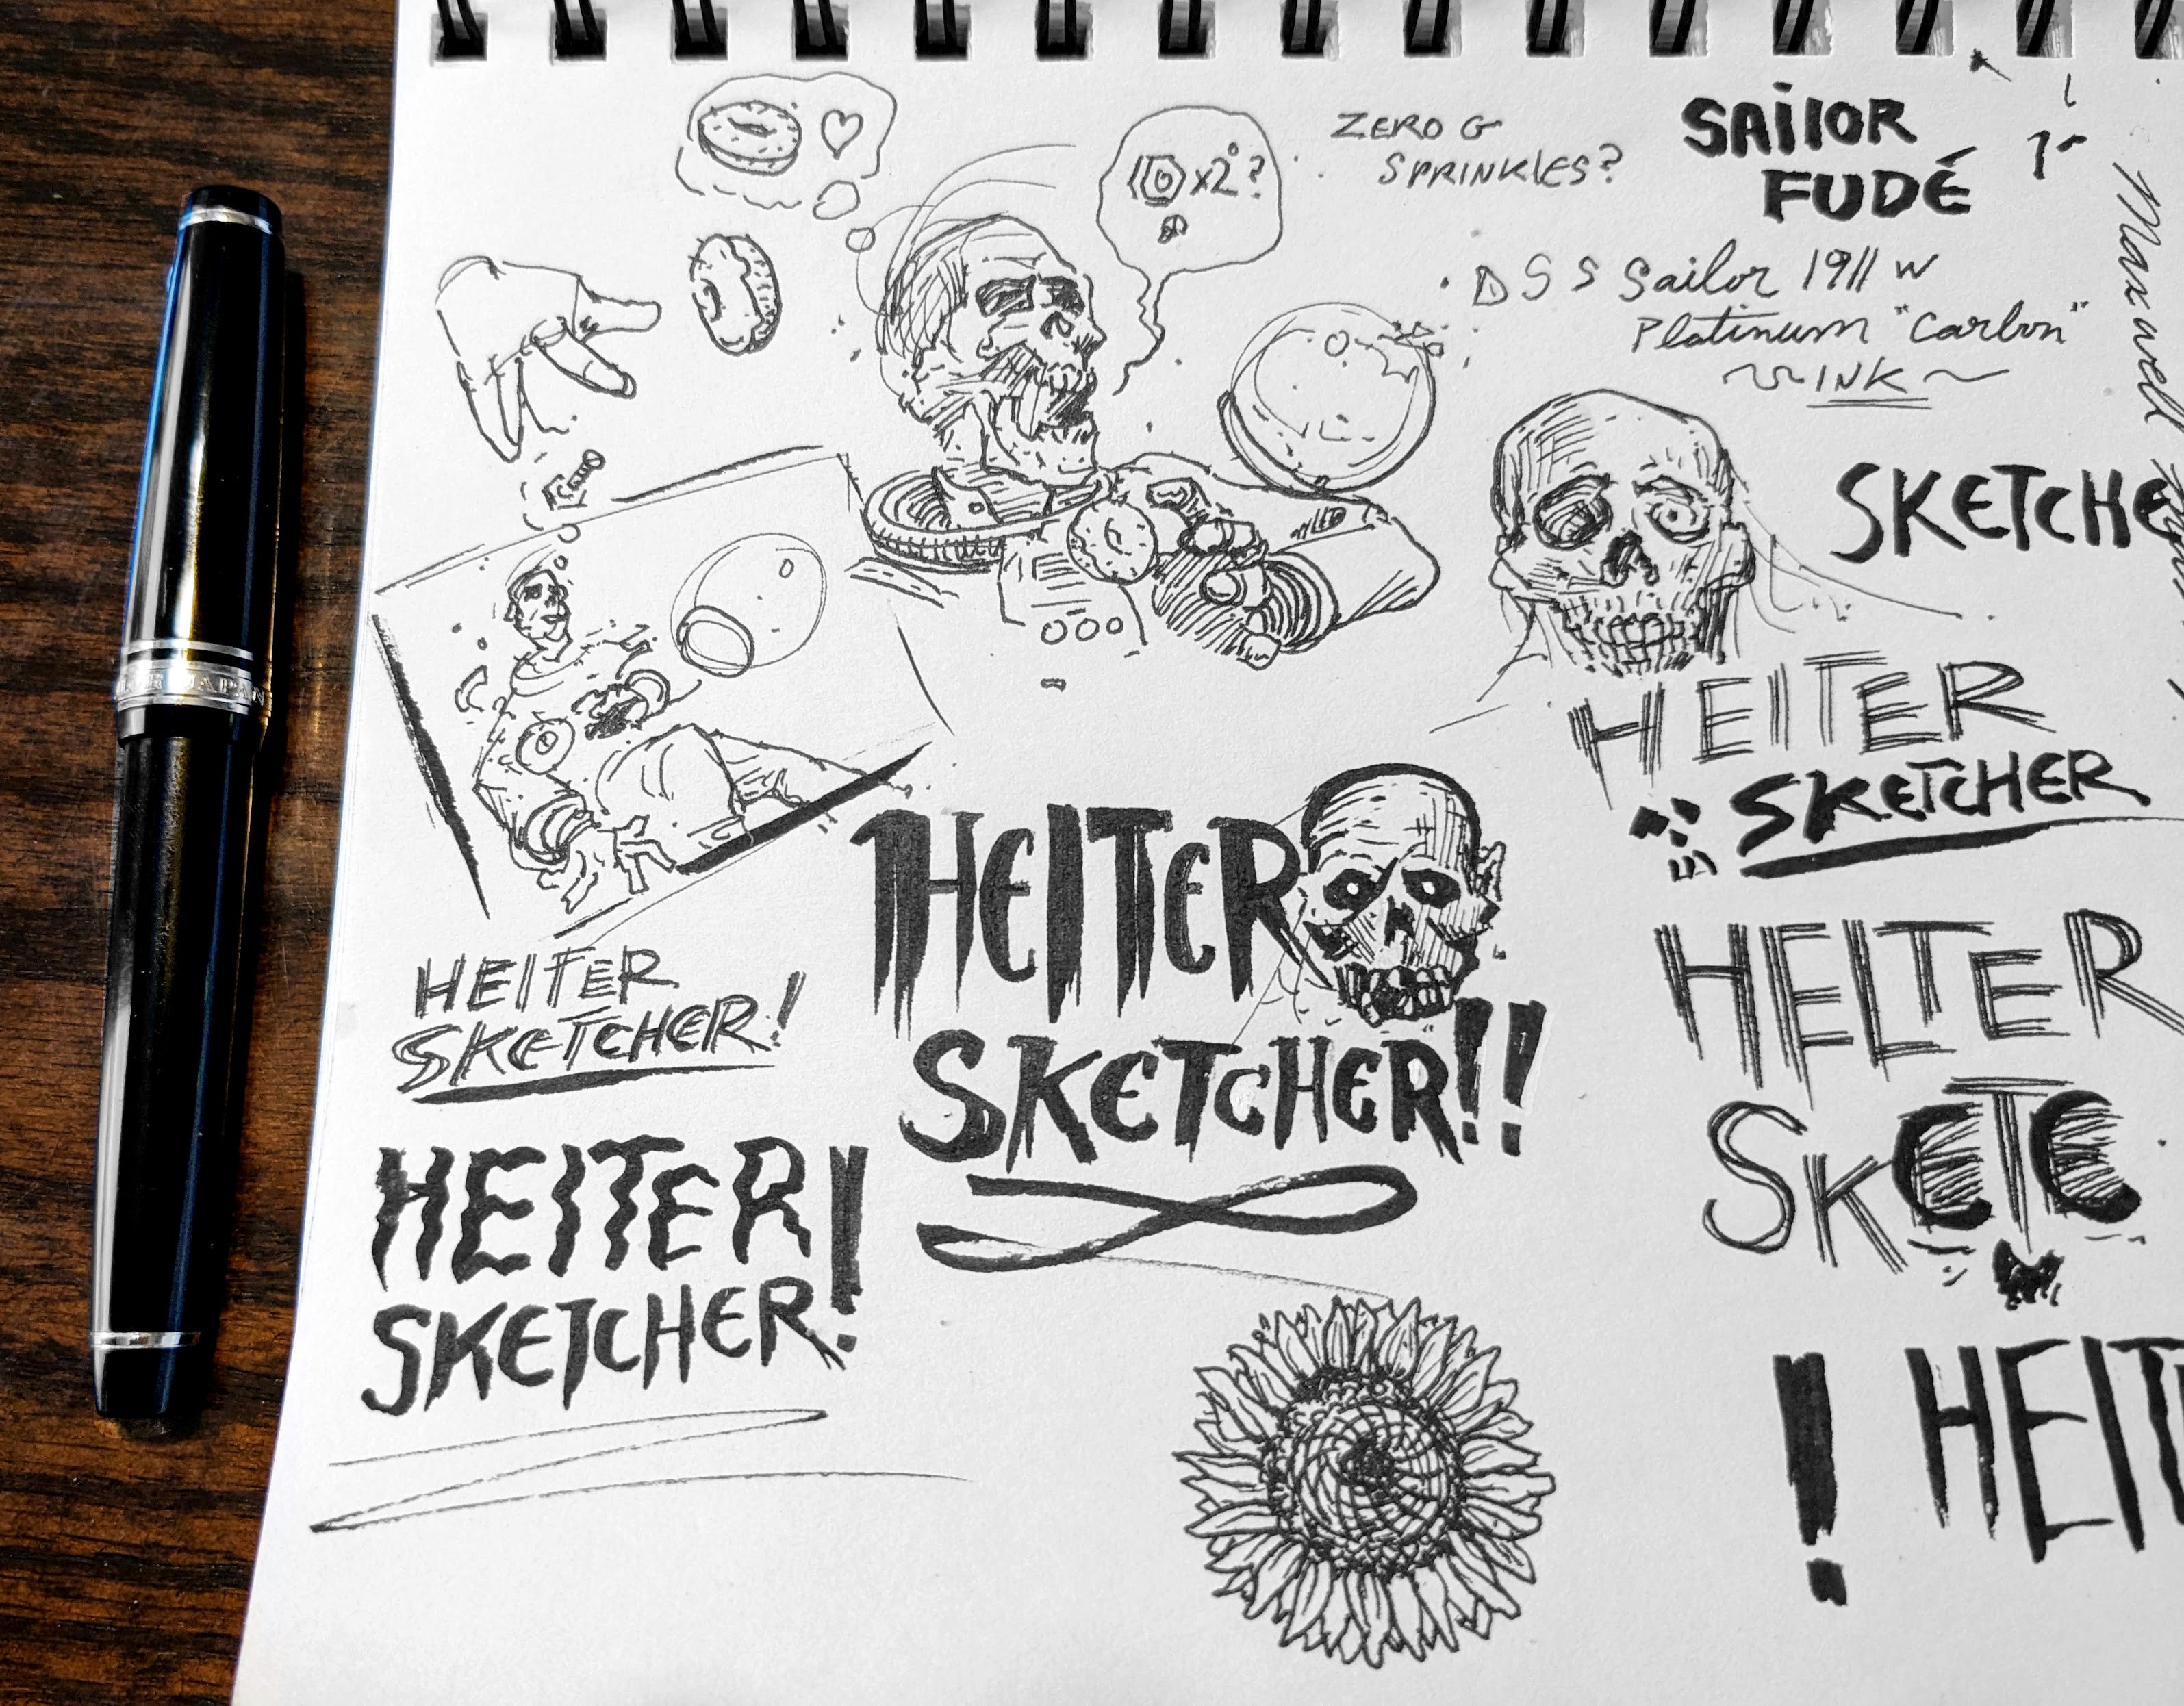 ZERO G
SPRINKLES?
x2?
SAilOR
FUDÉ
Sailor 1911 W
Platinum "Carbon"
~INK~
Maxwell
SKETCHE
HElTER
SKETCHER
HElTER
SKETCHER!!
HElTER
SKETCHER!
HElTER!
SKETCHER!
HELTER
SKETC
! HElT
JAPAN